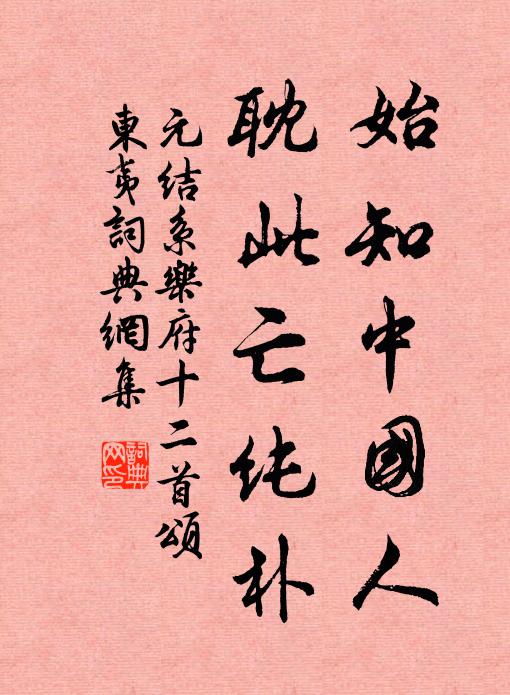 始知中國人
耽此亡純朴
元結系樂府十二首頌
東夷詞典網集
詞典
网印